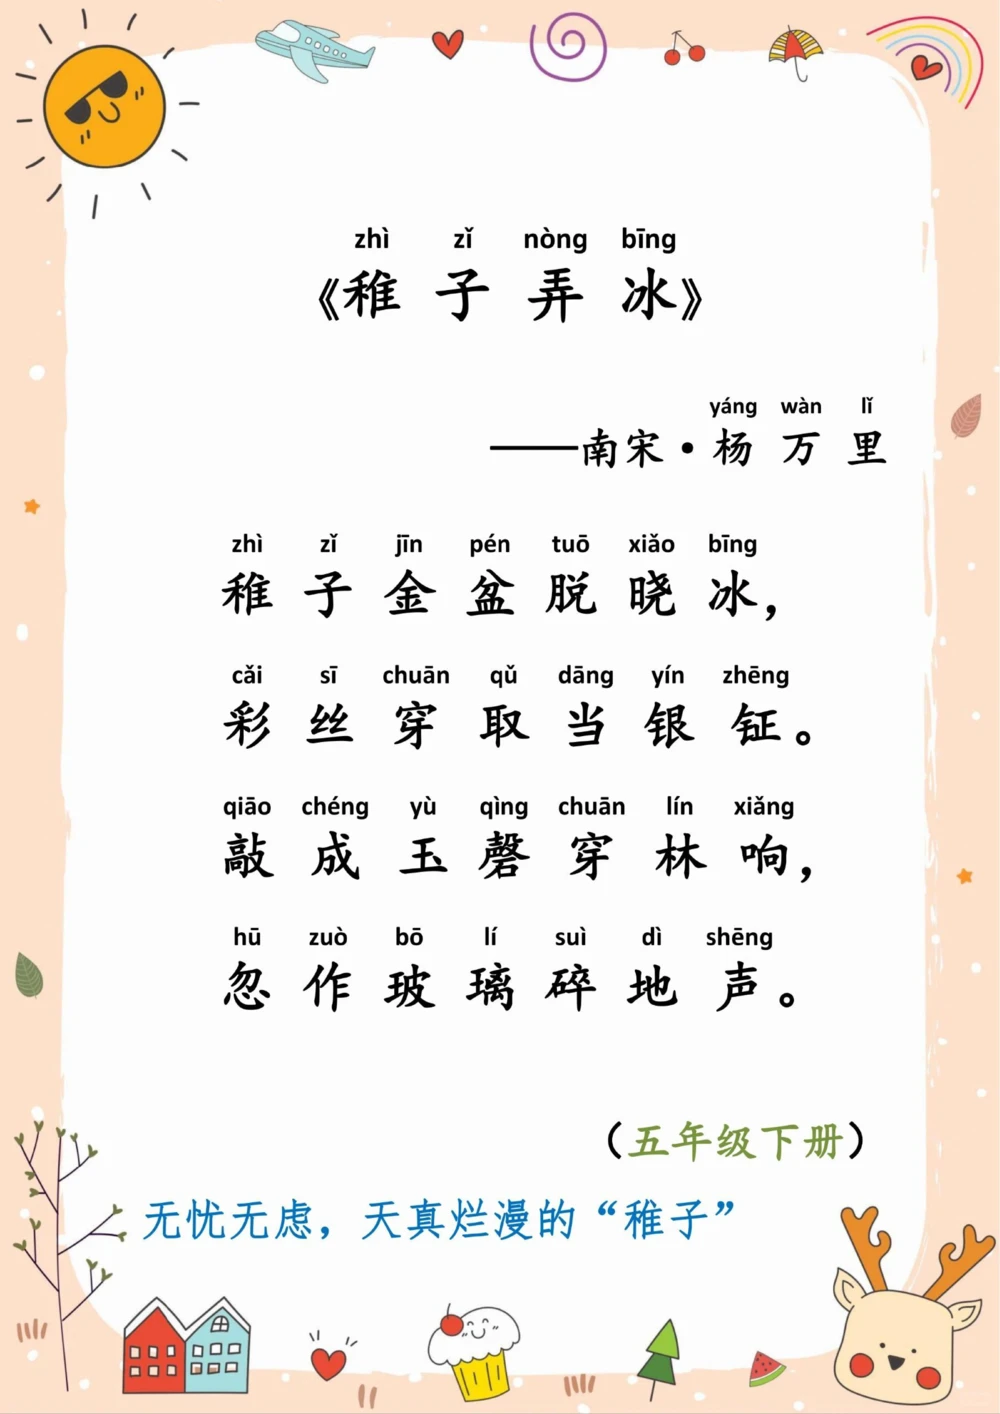 zhì zǐ nòng bīng
《稚子弄冰》
yáng wàn lǐ
——南宋·杨万里
zhì zǐ jīn pén tuō xiǎo bīng
稚子金盆脱晓冰，
cǎi sī chuān qǔ dāng yín zhēng
彩丝穿取当银钲。
qiāo chéng yù qìng chuān lín xiǎng
敲成玉磬穿林响，
hū zuò bō lí suì dì shēng
忽作玻璃碎地声。
（五年级下册）
无忧无虑，天真烂漫的“稚子”